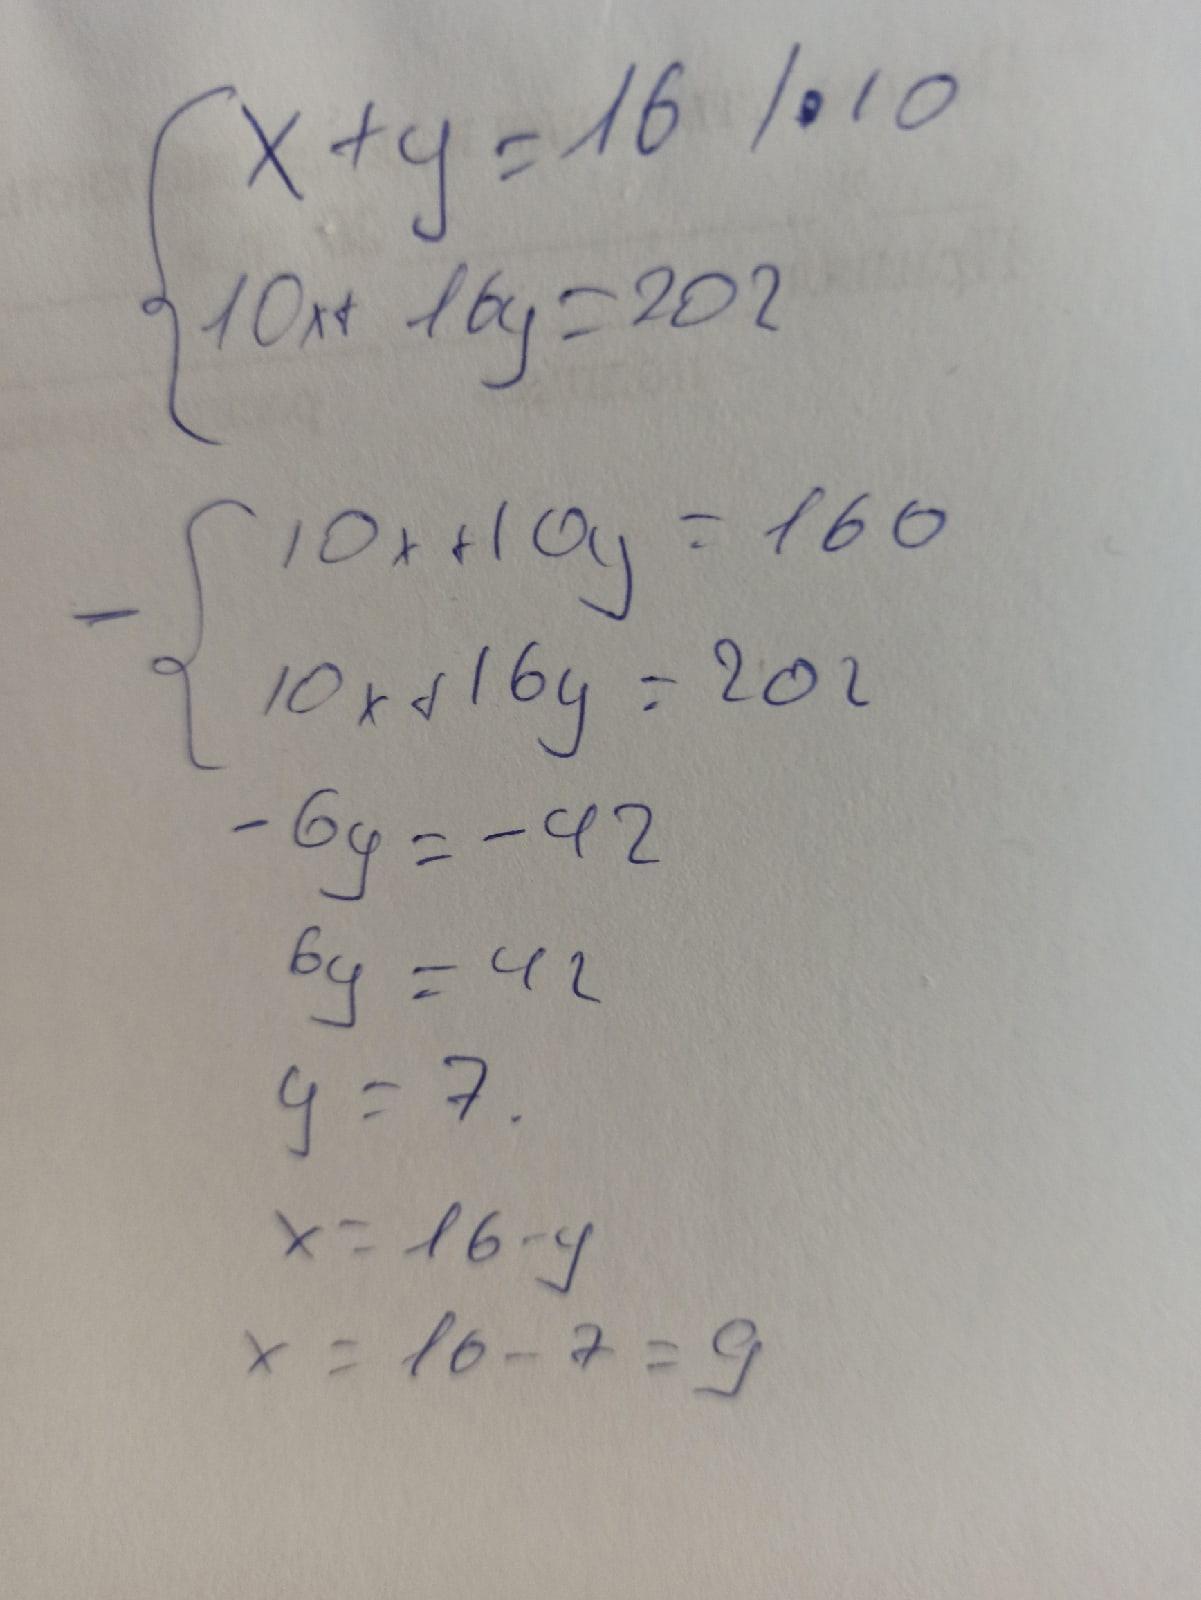 x+y=16 /•10
10x+16y=202
10x+10y=160
-
10x+16y=202
-6y=-42
6y=42
y=7.
x=16-y
x=16-7=9